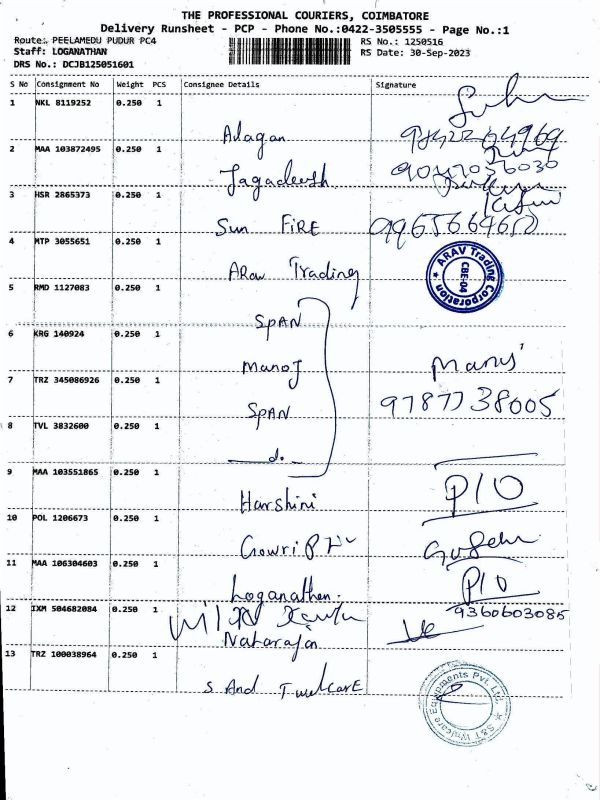 THE PROFESSIONAL COURIERS, COIMBATORE
Delivery Runsheet - PCP - Phone No.:0422-3505555 - Page No.:1
Route: PEELAMEDU PUDUR PC4 RS No.: 1250516
Staff: LOGANATHAN RS Date: 30-Sep-2023
DRS No.: DCJB125051601
S No Consignment No Weight PCS Consignee Details Signature
1 NKL 8119252 0.250 1
Alagan
2 MAA 103872495 0.250 1
Jagadeesh
3 HSR 2865373 0.250 1
Sun FiRE 9965669650
4 MTP 3055651 0.250 1
ARav Trading ARAV Trading Corporation CBE-04
5 RMD 1127083 0.250 1
SPAN
6 KRG 140924 0.250 1
ManoJ
7 TRZ 345086926 0.250 1
SPAN 9787738005
8 TVL 3832600 0.250 1
d.
9 MAA 103551865 0.250 1
Harshini P/O
10 POL 1206673 0.250 1
Gowri
11 MAA 106304603 0.250 1
Loganathan. P/O
12 IXM 504682084 0.250 1 9360603085
Natarajan
13 TRZ 100038964 0.250 1
S And T welcarE S&T Welcare Equipments Pvt. Ltd.